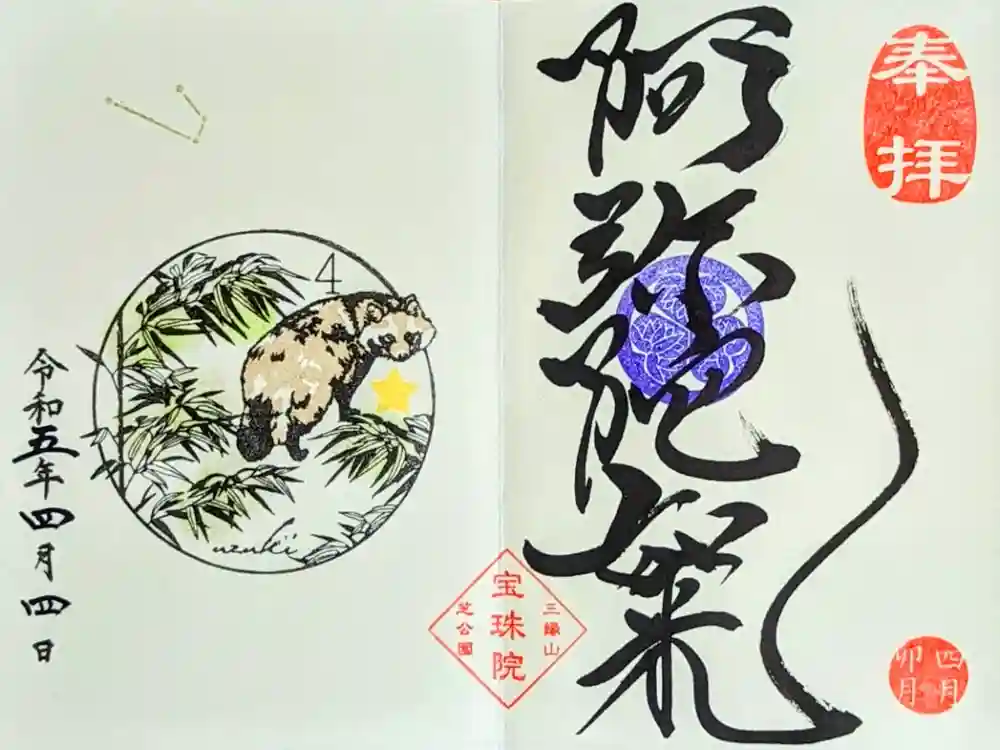 奉拝
阿弥陀如来
四月
卯月
三縁山
宝珠院
芝公園
4
uzuki
令和五年四月四日